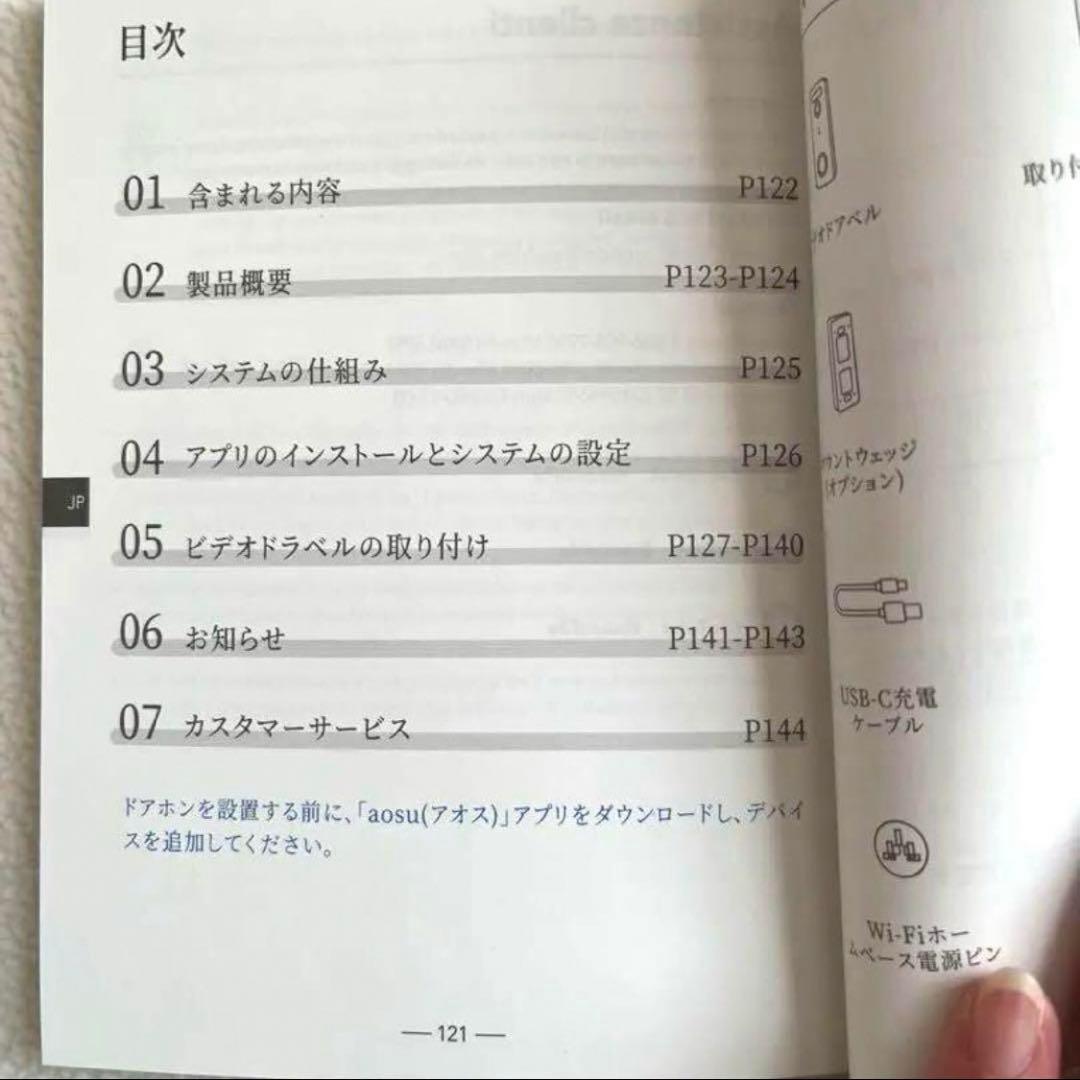 目次
01 含まれる内容 P122
02 製品概要 P123-P124
03 システムの仕組み P125
04 アプリのインストールとシステムの設定 P126
05 ビデオドラベルの取り付け P127-P140
06 お知らせ P141-P143
07 カスタマーサービス P144
JP
ドアホンを設置する前に、「aosu(アオス)」アプリをダウンロードし、デバイ
スを追加してください。
— 121 —
取り付
オドアベル
ウントウェッジ
(オプション)
USB-C充電
ケーブル
Wi-Fiホー
ムベース電源ピン